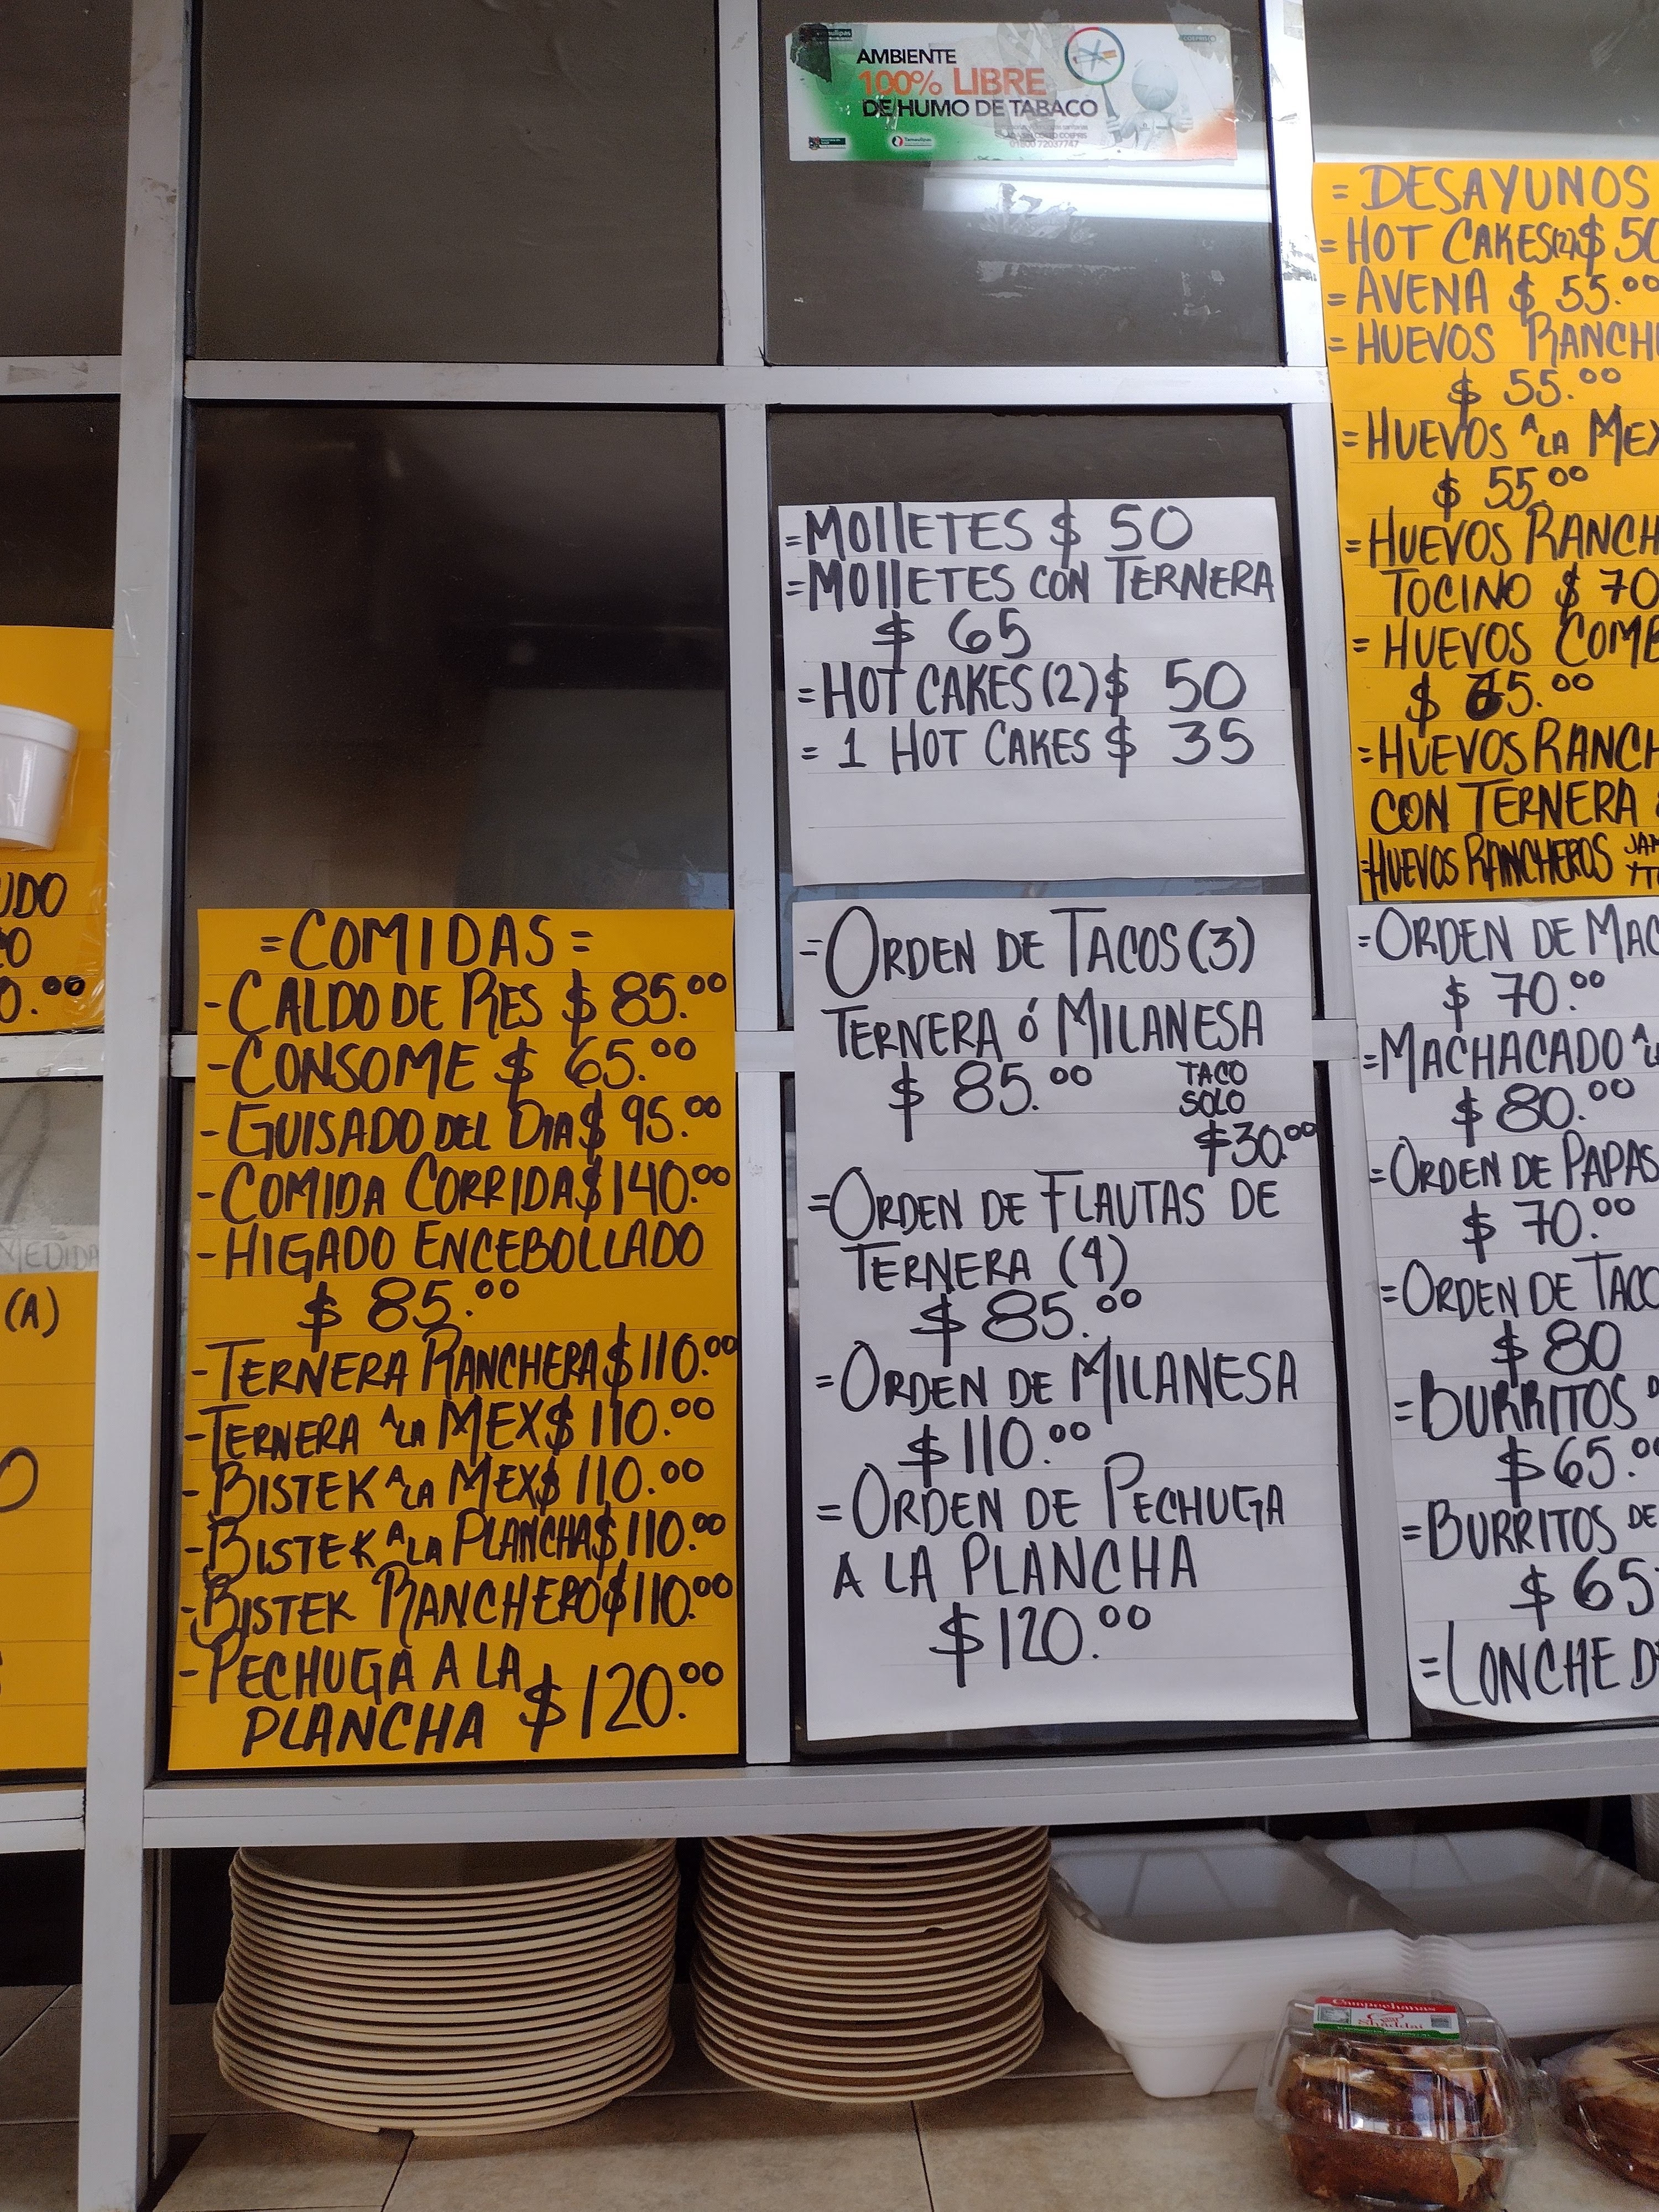 AMBIENTE
100% LIBRE
DE HUMO DE TABACO
01800 72037747
Tamaulipas
UDO
O
0.00
MEDIDA
(A)
=COMIDAS=
-CALDO DE RES $ 85.00
-CONSOME $ 65.00
-GUISADO DEL DIA $ 95.00
-COMIDA CORRIDA $140.00
-HIGADO ENCEBOLLADO
$ 85.00
-TERNERA RANCHERA $110.00
-TERNERA A LA MEX $ 110.00
-BISTEK A LA MEX $ 110.00
-BISTEK A LA PLANCHA $110.00
-BISTEK RANCHERO $110.00
-PECHUGA A LA
PLANCHA $120.00
=MOLLETES $ 50
=MOLLETES CON TERNERA
$ 65
=HOT CAKES (2) $ 50
= 1 HOT CAKES $ 35
=ORDEN DE TACOS (3)
TERNERA ó MILANESA
$ 85.00
TACO
SOLO
$30.00
=ORDEN DE FLAUTAS DE
TERNERA (4)
$ 85.00
=ORDEN DE MILANESA
$110.00
=ORDEN DE PECHUGA
A LA PLANCHA
$120.00
= DESAYUNOS
=HOT CAKES (2) $ 50
=AVENA $ 55.00
=HUEVOS RANCH
$ 55.00
=HUEVOS A LA MEX
$ 55.00
=HUEVOS RANCH
TOCINO $ 70
=HUEVOS COMB
$ 65.00
=HUEVOS RANCH
CON TERNERA
=HUEVOS RANCHEROS JAM
Y TO
=ORDEN DE MAC
$ 70.00
=MACHACADO A LA
$ 80.00
=ORDEN DE PAPAS
$ 70.00
=ORDEN DE TACO
$ 80
=BURRITOS D
$ 65.00
=BURRITOS DE
$ 65
=LONCHE D
Campechanas
Shaddai